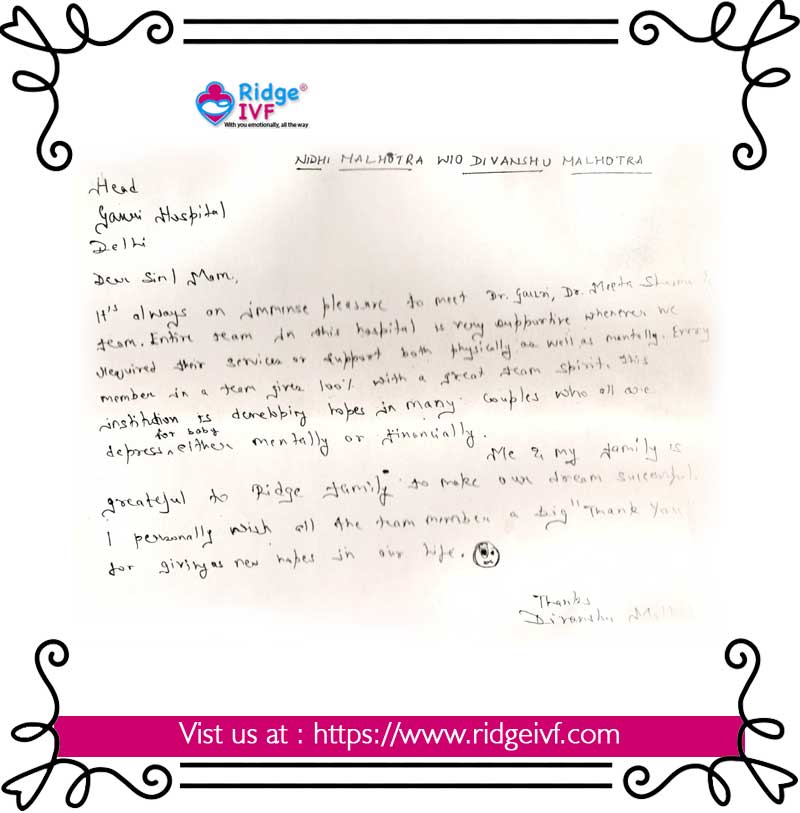 Ridge®
IVF
With you emotionally, all the way
NIDHI MALHOTRA W/O DIVANSHU MALHOTRA
Head
Gauri Hospital
Delhi
Dear Sir/ Mam,
It's always an immense pleasure to meet Dr. Gauri, Dr. Meeta Sharma &
team. Entire team in this hospital is very supportive whenever we
required their services or support both physically as well as mentally. Every
member in a team gives 100% with a great team spirit. This
institution is developing hopes in many couples who all are
for baby
depress either mentally or financially.
Me & my family is
greateful to Ridge family to make our dream successful.
I personally wish all the team member a big "Thank You"
for giving us new hopes in our life.
Thanks
Divanshu
Vist us at : https://www.ridgeivf.com